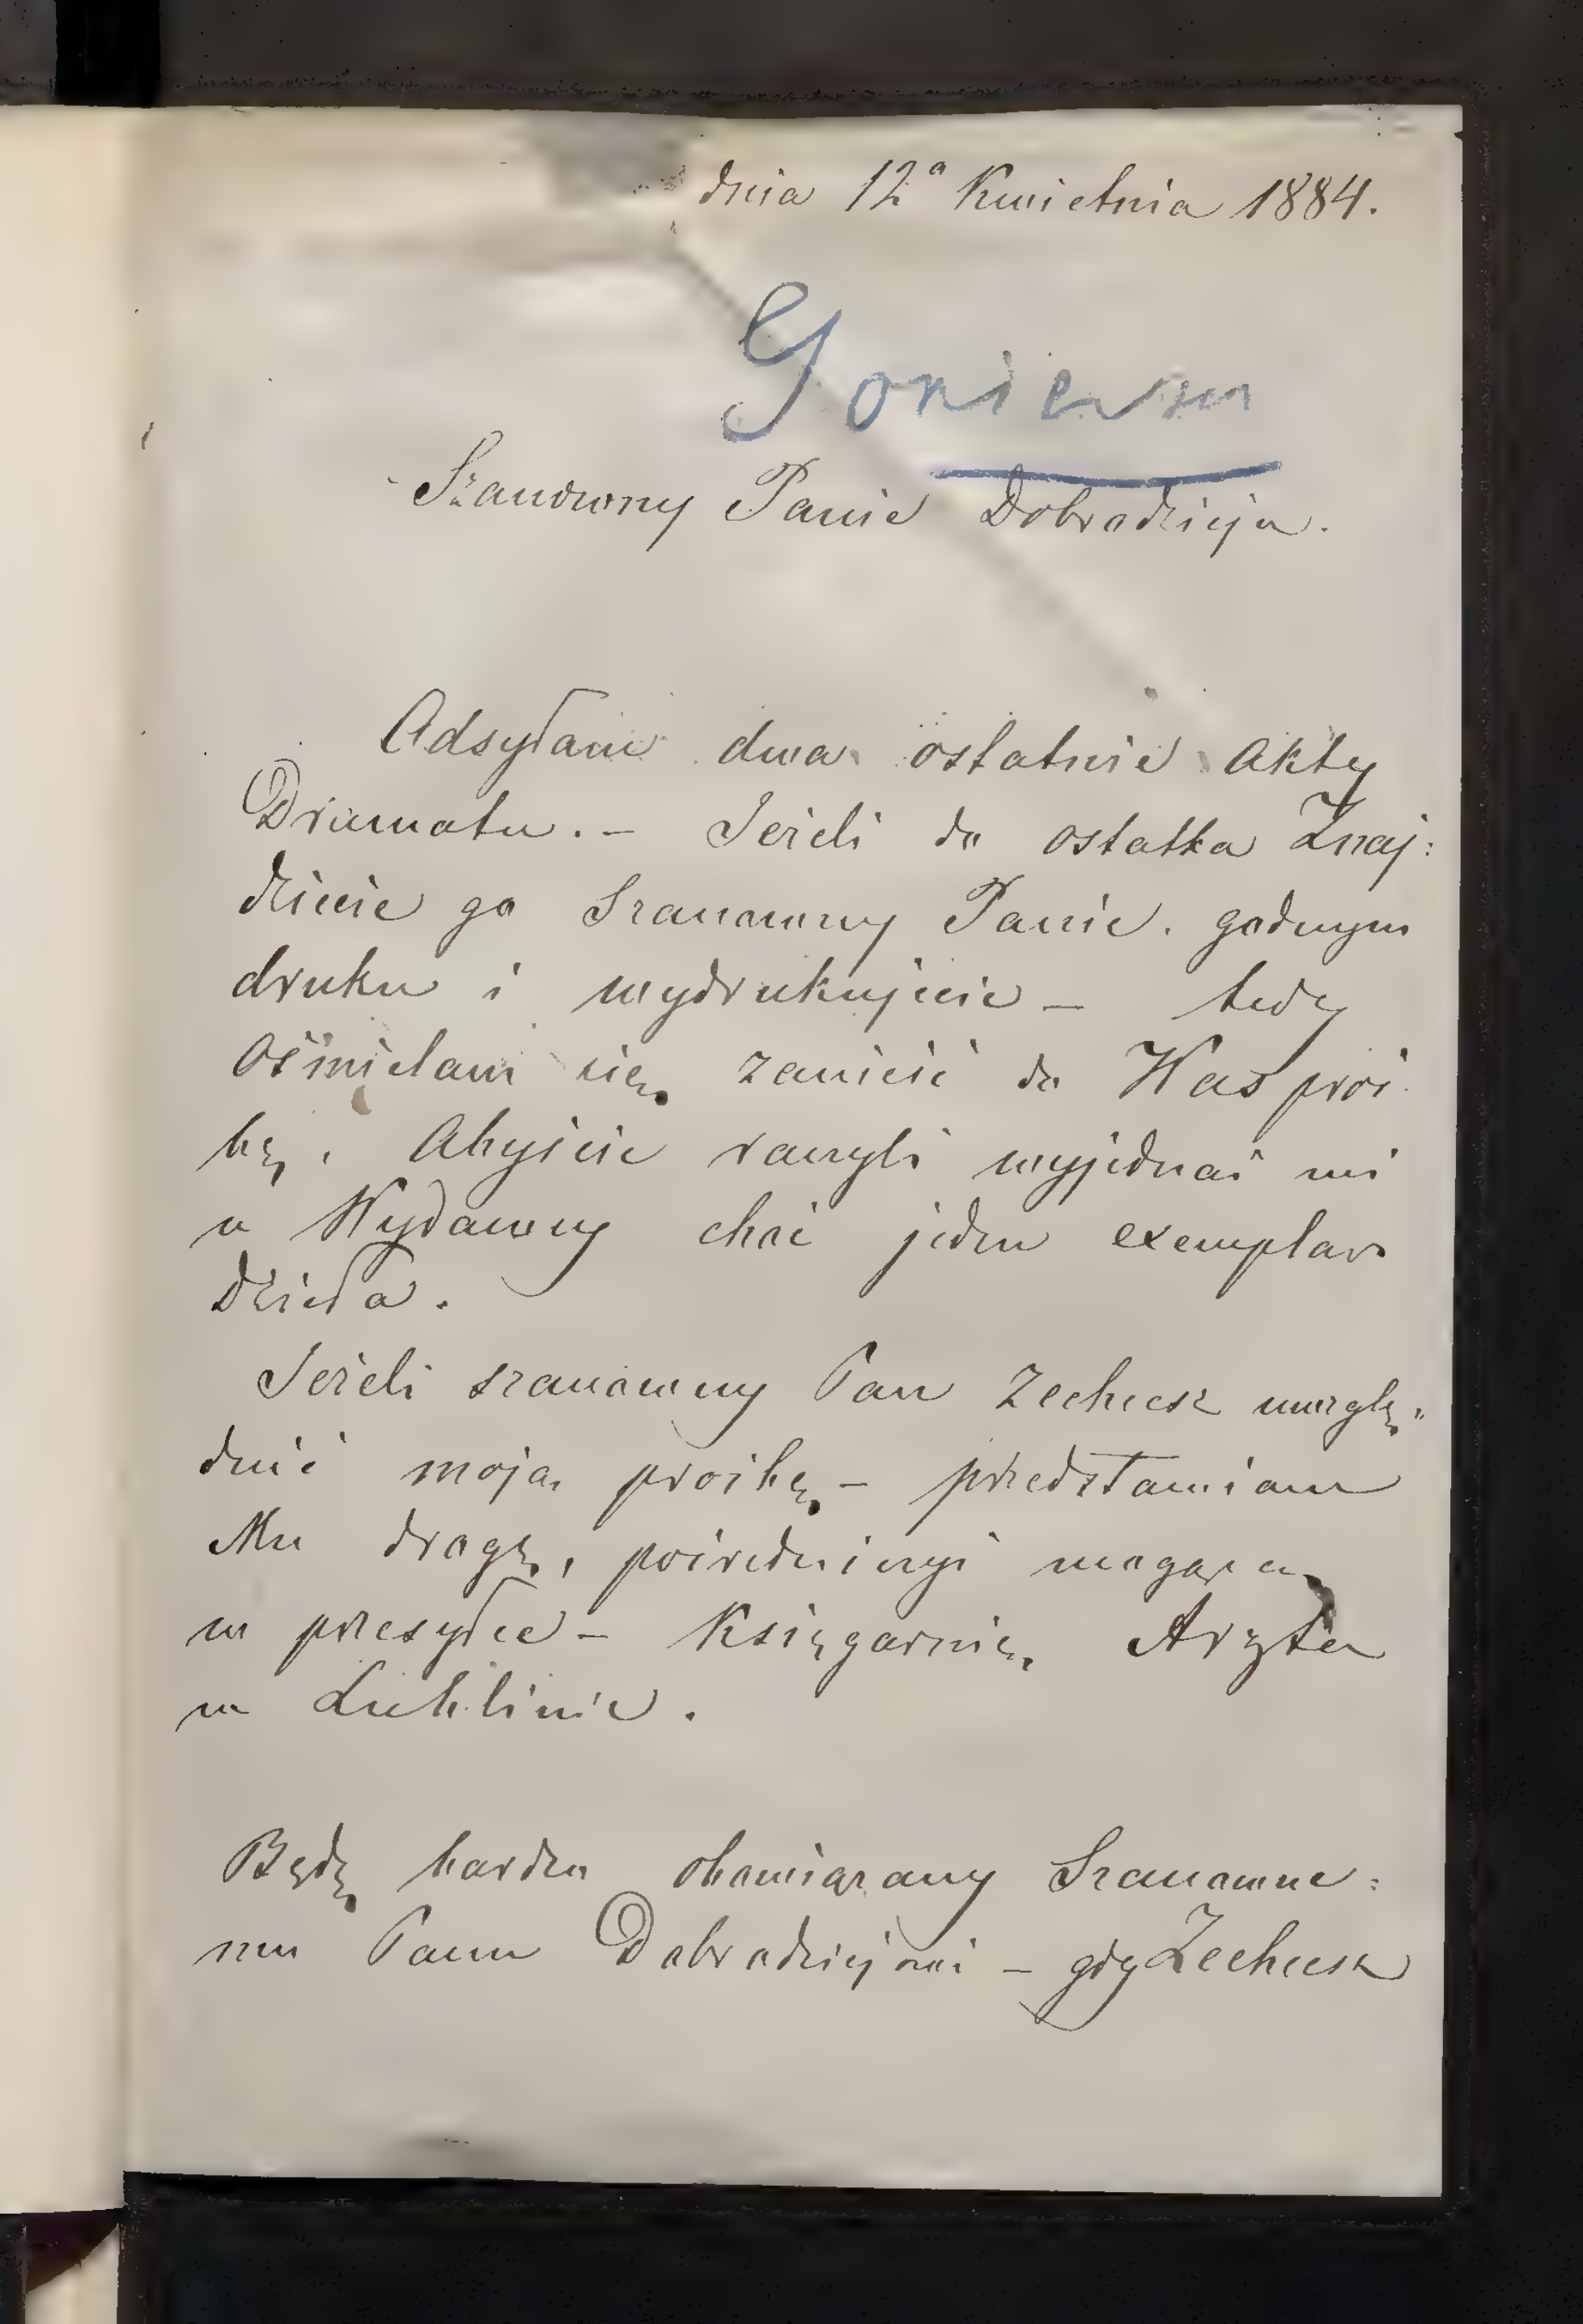 dnia 12ᵃ Kwietnia 1884.
Szanowny Panie Dobrodzieju.
Odsyłam dwa ostatnie Akty
Dramatu. – Jeżeli do ostatka Znaj:
dziecie go Szanowny Panie. godnym
druku i wydrukujecie – tedy
Ośmielam się zanieść do Was proś
bę, Abyście raczyli wyjednać mi
u Wydawcy choć jeden exemplarz
Dzieła.
Jeżeli szanowny Pan Zechcesz uwzglę„
dnić moją prośbę – przedstawiam
Mu drogę, pośredniczyć mogącą
w przesyłce – Księgarnię Arzta
w Lublinie.
Będę bardzo obowiązany Szanowne:
mu Panu Dobrodziejowi – gdy Zechcesz